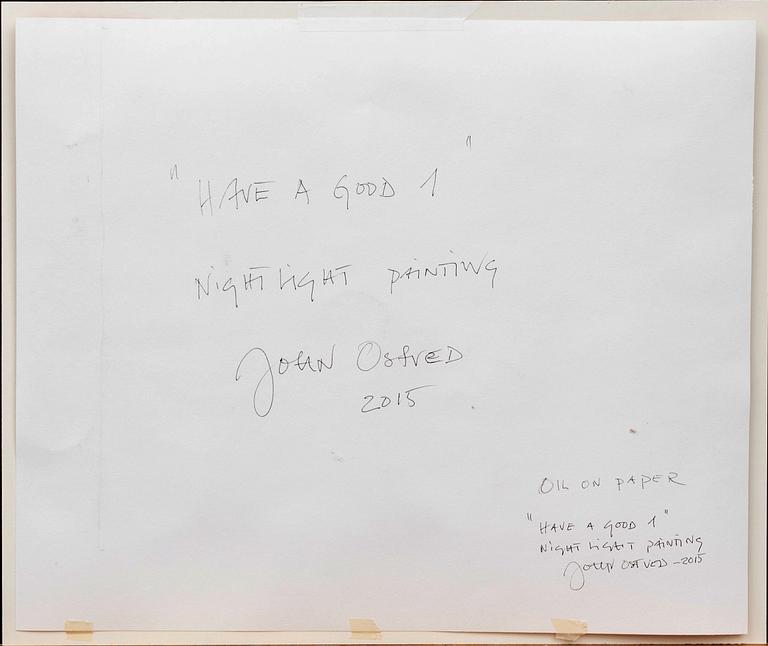 "HAVE A GOOD 1"
NIGHTLIGHT PAINTING
JOHN OSTVED
2015
OIL ON PAPER
"HAVE A GOOD 1"
NIGHT LIGHT PAINTING
JOHN OSTVED - 2015